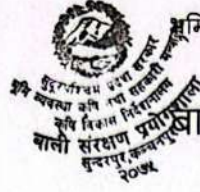 सुदूरपश्चिम प्रदेश सरकार
भूमि व्यवस्था कृषि तथा सहकारी मन्त्रालय
कृषि विकास निर्देशनालय
बाली संरक्षण प्रयोगशाला
सुन्दरपुर, कञ्चनपुर
२०७५
भूमि
बा